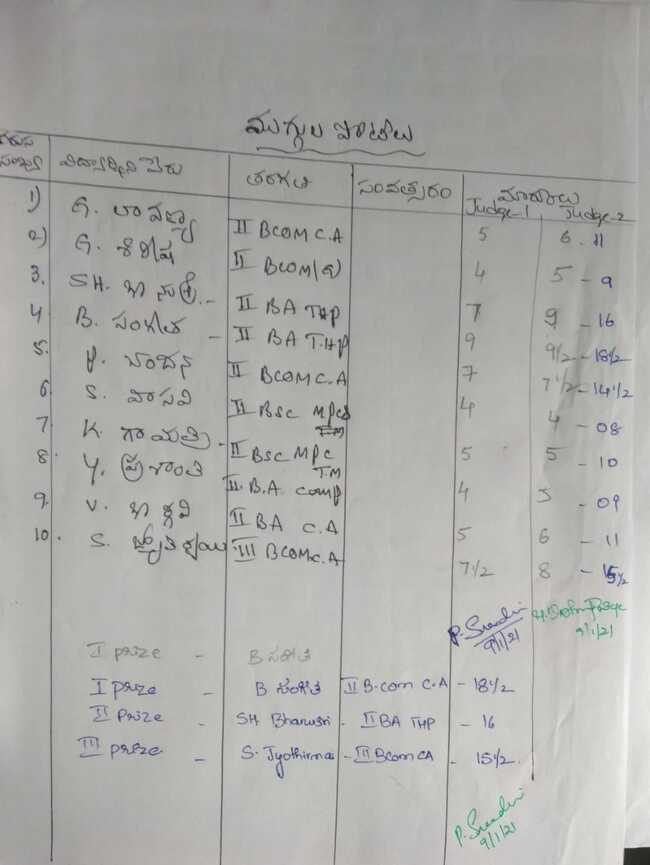 ముగ్గుల పోటీలు
వరుస సంఖ్య విద్యార్థిని పేరు తరగతి సంవత్సరం మార్కులు
Judge-1 Judge-2
1) G. లావణ్య II BCOM C.A 5 6 - 11
2) G. శిరీష II BCOM(G) 4 5 - 9
3. SH. భానుశ్రీ - II BA THP 7 9 - 16
4 B. సంగీత - II BA T.HP 9 9 1/2 - 18 1/2
5. P. చందన II BCOM C.A 7 7 1/2 - 14 1/2
6 S. వాసవి II BSC MPCS EM 4 4 - 08
7 K. గాయత్రి - II BSC MPC TM 5 5 - 10
8 Y. ప్రశాంతి II B.A comp 4 5 - 09
9. V. భార్గవి II BA C.A 5 6 - 11
10. S. జ్యోతిర్మయి III BCOM C.A 7 1/2 8 - 15 1/2
P. Sreedevi 9/1/21 9/1/21
I prize - B సంగీత
I prize - B సంగీత II B.com C.A - 18 1/2
II Prize - SH Bhanusri - II BA THP - 16
III prize - S. Jyothirmai - III Bcom CA - 15 1/2
P. Sreedevi
9/1/21